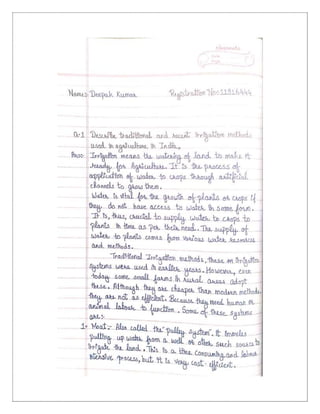 Name:- Deepak Kumar Registration No:- 11916444
Q-1 Describe traditional and recent Irrigation methods
used in agriculture in India.
Ans:- Irrigation means the watering of land to make it
ready for Agriculture. It is the process of
application of water to crops through artificial
channels to grow them.
Water is vital for the growth of plants or crops if
they do not have access to water in some form.
It is, thus, crucial to supply water to crops to
plants in time as per their need. The supply of
water to plants comes from various water resources
and methods.
Traditional Irrigation methods, these on Irrigation
systems were used in earlier years. However, even
today some small farms in rural areas adopt
these. Although they are cheaper than modern methods,
they are not as efficient. Because they need human or
animal labour to function. Some of these systems
are:
1- Moat:- Also called the "pulley system". It involves
pulling up water from a well or other such source to
irrigate the land. This is a time consuming and labour
intensive process, but it is very cost-efficient.